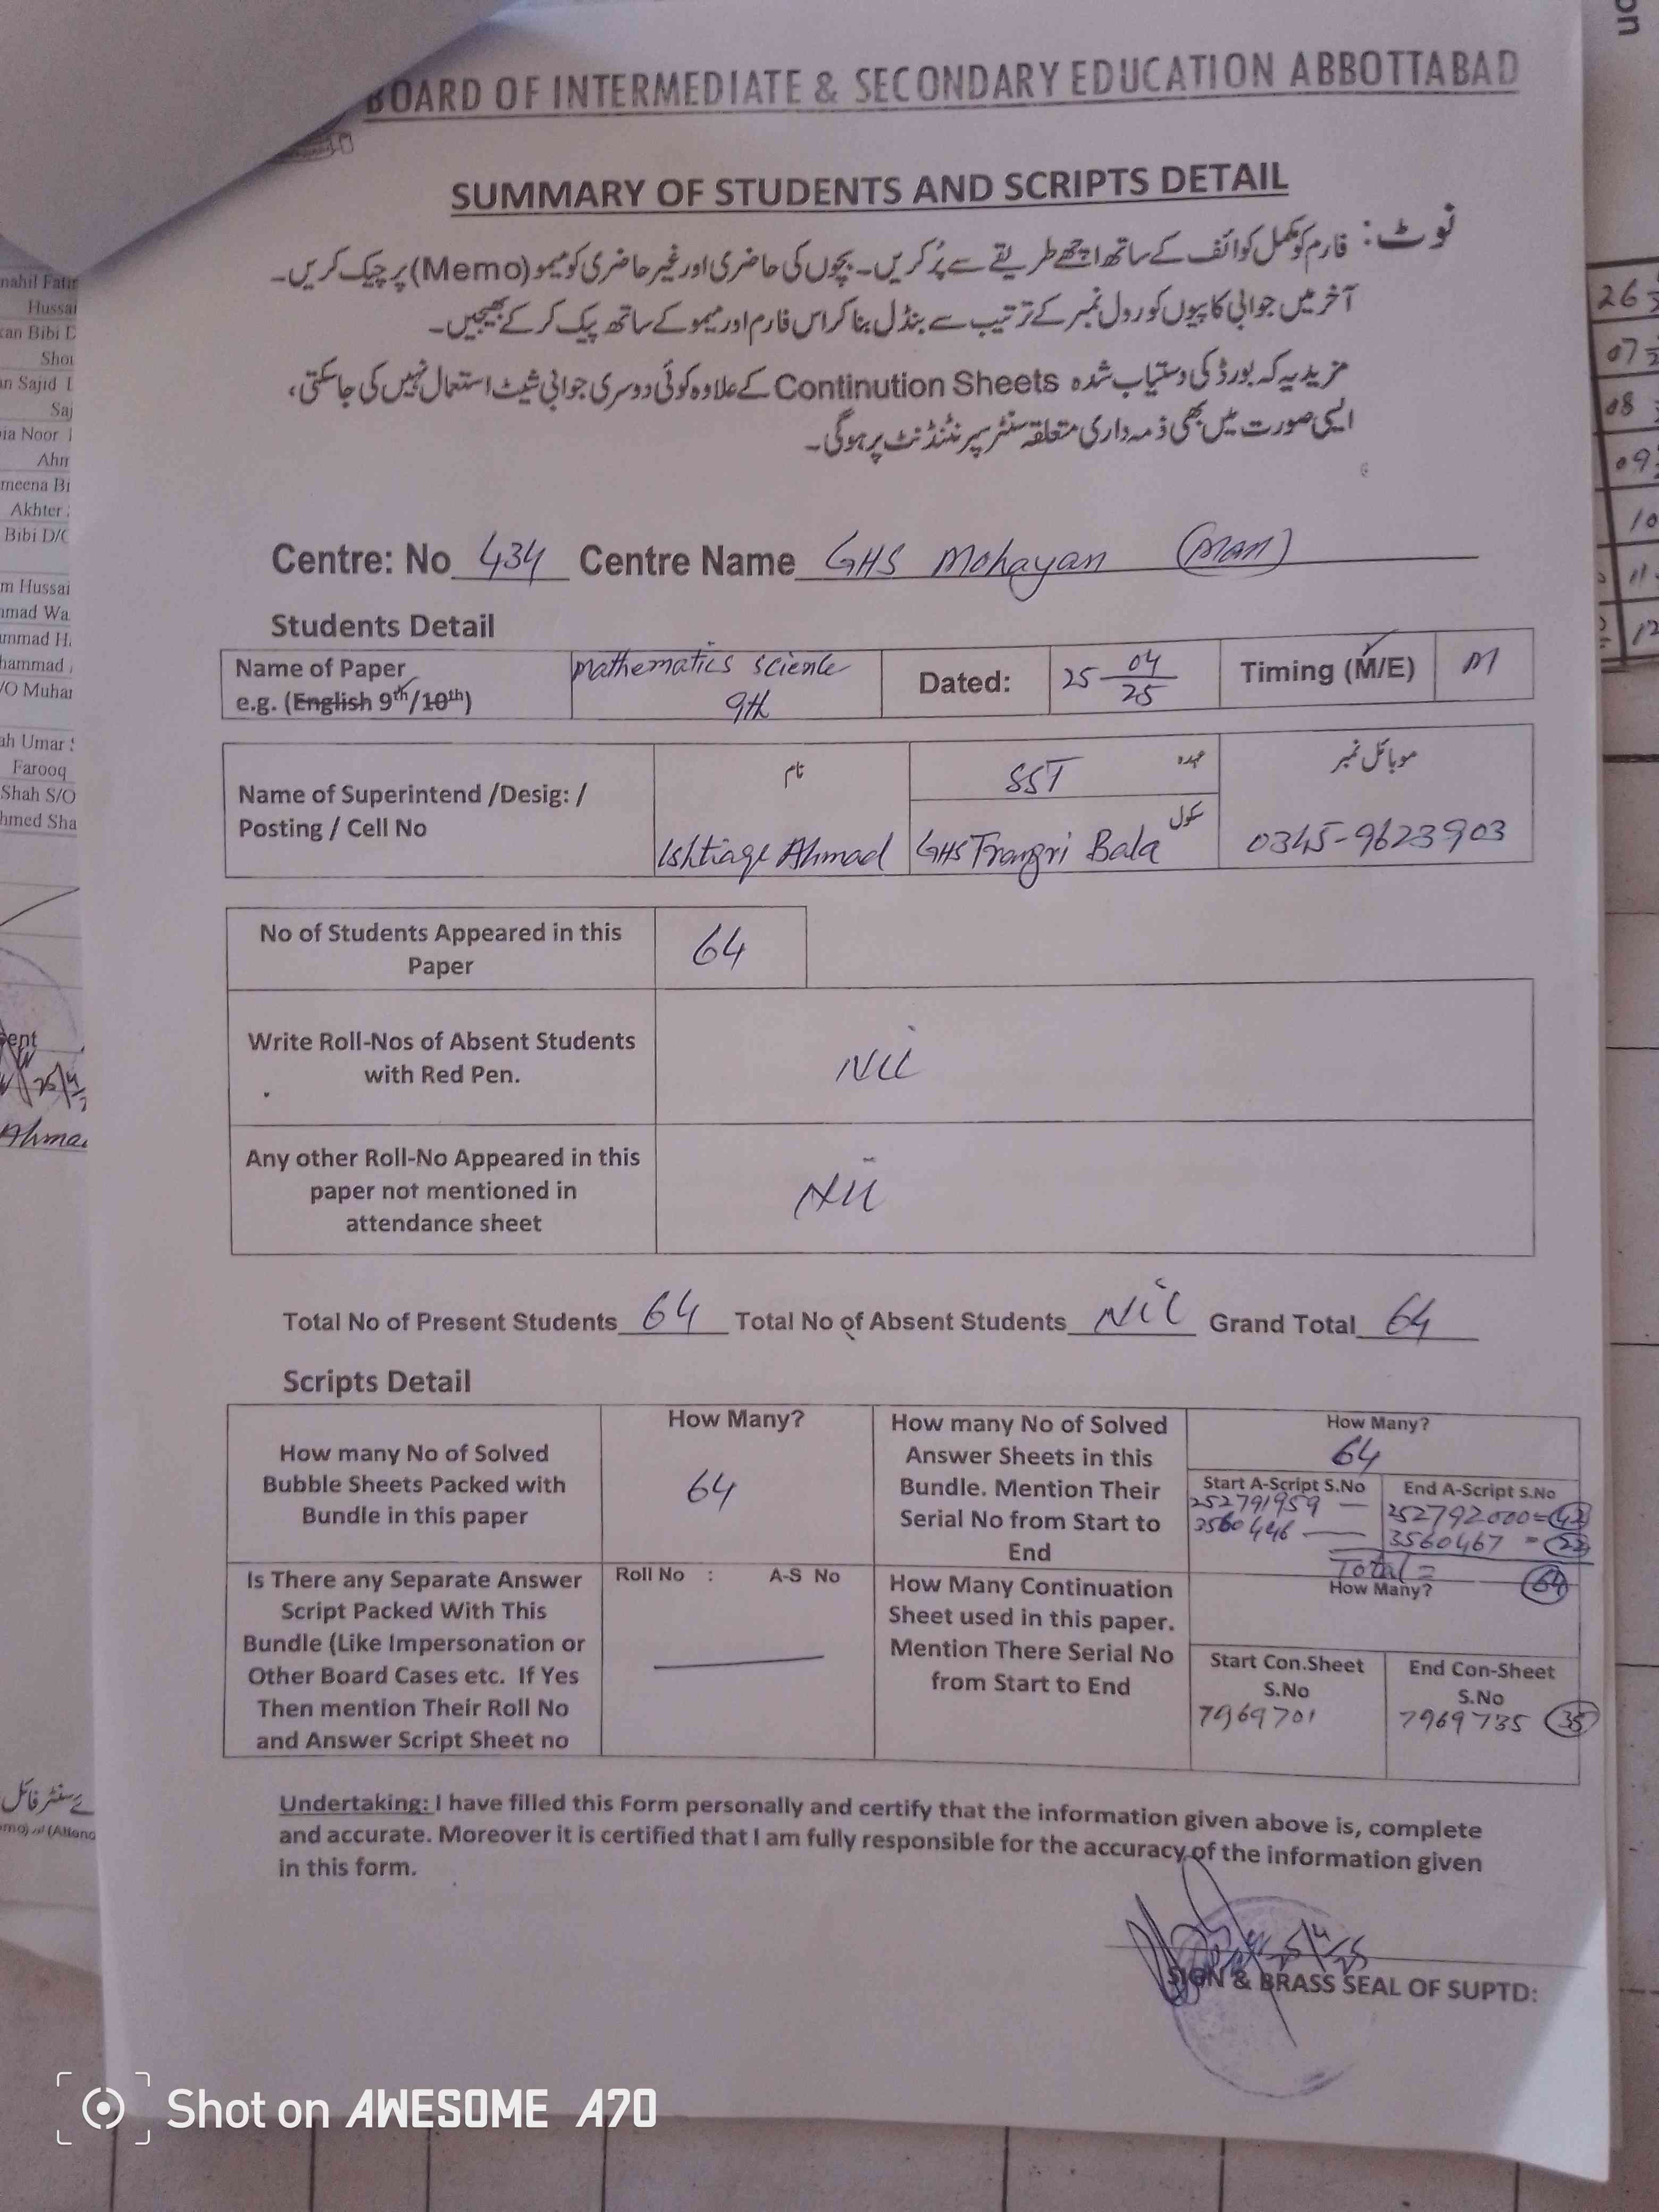 BOARD OF INTERMEDIATE & SECONDARY EDUCATION ABBOTTABAD
SUMMARY OF STUDENTS AND SCRIPTS DETAIL
نوٹ: فارم کو مکمل کوائف کے ساتھ اچھے طریقے سے پُر کریں۔ بچوں کی حاضری اور غیر حاضری کو میمو (Memo) پر چیک کریں۔
آخر میں جوابی کاپیوں کو رول نمبر کے ترتیب سے بنڈل بنا کر اس فارم اور میمو کے ساتھ پیک کر کے بھیجیں۔
مزید یہ کہ بورڈ کی دستیاب شدہ Continution Sheets کے علاوہ کوئی دوسری جوابی شیٹ استعمال نہیں کی جا سکتی،
ایسی صورت میں بھی ذمہ داری متعلقہ سنٹر سپرنٹنڈنٹ پر ہوگی۔
Centre: No 434 Centre Name GHS Mohayan (Man)
Students Detail
Name of Paper
e.g. (English 9th/10th)
Mathematics Science
9th
Dated:
25-04/25
Timing (M/E)
M
Name of Superintend /Desig: /
Posting / Cell No
نام
Ishtiaqe Ahmad
عہدہ
SST
سکول
GHS Trangri Bala
موبائل نمبر
0345-9623903
No of Students Appeared in this
Paper
64
Write Roll-Nos of Absent Students
with Red Pen.
Nil
Any other Roll-No Appeared in this
paper not mentioned in
attendance sheet
Nil
Total No of Present Students 64 Total No of Absent Students Nil Grand Total 64
Scripts Detail
How many No of Solved
Bubble Sheets Packed with
Bundle in this paper
How Many?
64
How many No of Solved
Answer Sheets in this
Bundle. Mention Their
Serial No from Start to
End
How Many?
64
Start A-Script S.No
End A-Script S.No
252791959 — 252792000=(42)
3560446 — 3560467 = (22)
Total = (64)
Is There any Separate Answer
Script Packed With This
Bundle (Like Impersonation or
Other Board Cases etc. If Yes
Then mention Their Roll No
and Answer Script Sheet no
Roll No : A-S No
How Many Continuation
Sheet used in this paper.
Mention There Serial No
from Start to End
How Many?
Start Con.Sheet
S.No
7969701
End Con-Sheet
S.No
7969735 (35)
Undertaking: I have filled this Form personally and certify that the information given above is, complete
and accurate. Moreover it is certified that I am fully responsible for the accuracy of the information given
in this form.
25/4/25
SIGN & BRASS SEAL OF SUPTD:
Shot on AWESOME A70
Hussai
Bibi D
Sajid
Noor
Akhter
Bibi D/O
Hussai
Umar
Farooq
Shah S/O
26
07
08
09
10
11
12